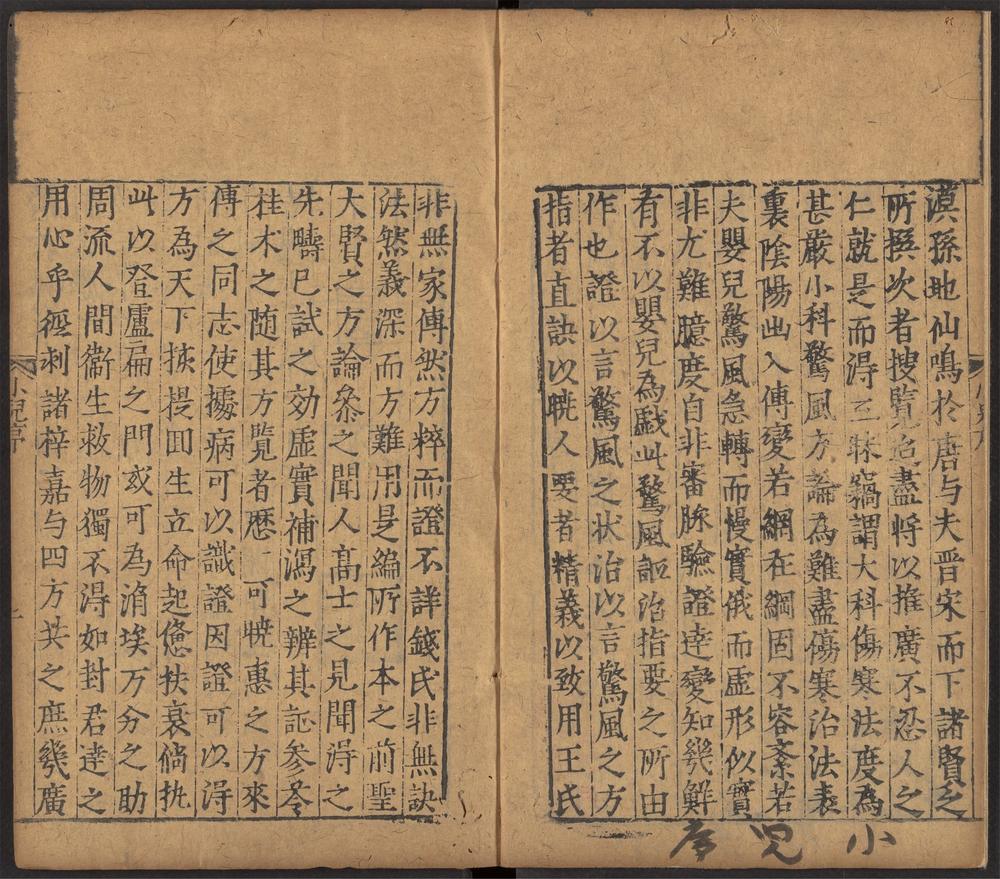 漠孫地仙鳴於唐与夫晋宋而下諸賢之
所撰次者搜覽迨盡將以推廣不忍人之
仁就是而淂三昧竊謂大科傷寒法度為
甚嚴小科驚風方論為難盡傷寒治法表
裏陰陽出入傳變若網在綱固不容紊若
夫嬰兒驚風急轉而慢實俄而虛形似實
非尤難臆度自非審脉驗證達變知幾鮮
有不以嬰兒為戲此驚風証治指要之所由
作也證以言驚風之状治以言驚風之方
指者直訣以曉人要者精義以致用王氏
非無家傳然方粹而證不詳錢氏非無訣
法然義深而方難用是編所作本之前聖
大賢之方論叅之聞人髙士之見聞淂之
先疇已試之効虛實補瀉之辨其証参苓
桂术之随其方覽者歷一可曉惠之方來
傳之同志使據病可以識證因證可以淂
方為天下挾提囬生立命起憊扶衰倘执
此以登盧扁之門或可為涓埃万分之助
周流人間衛生救物獨不淂如封君達之
用心乎亟刺諸梓嘉与四方共之庶幾廣
小兒序
小兒序